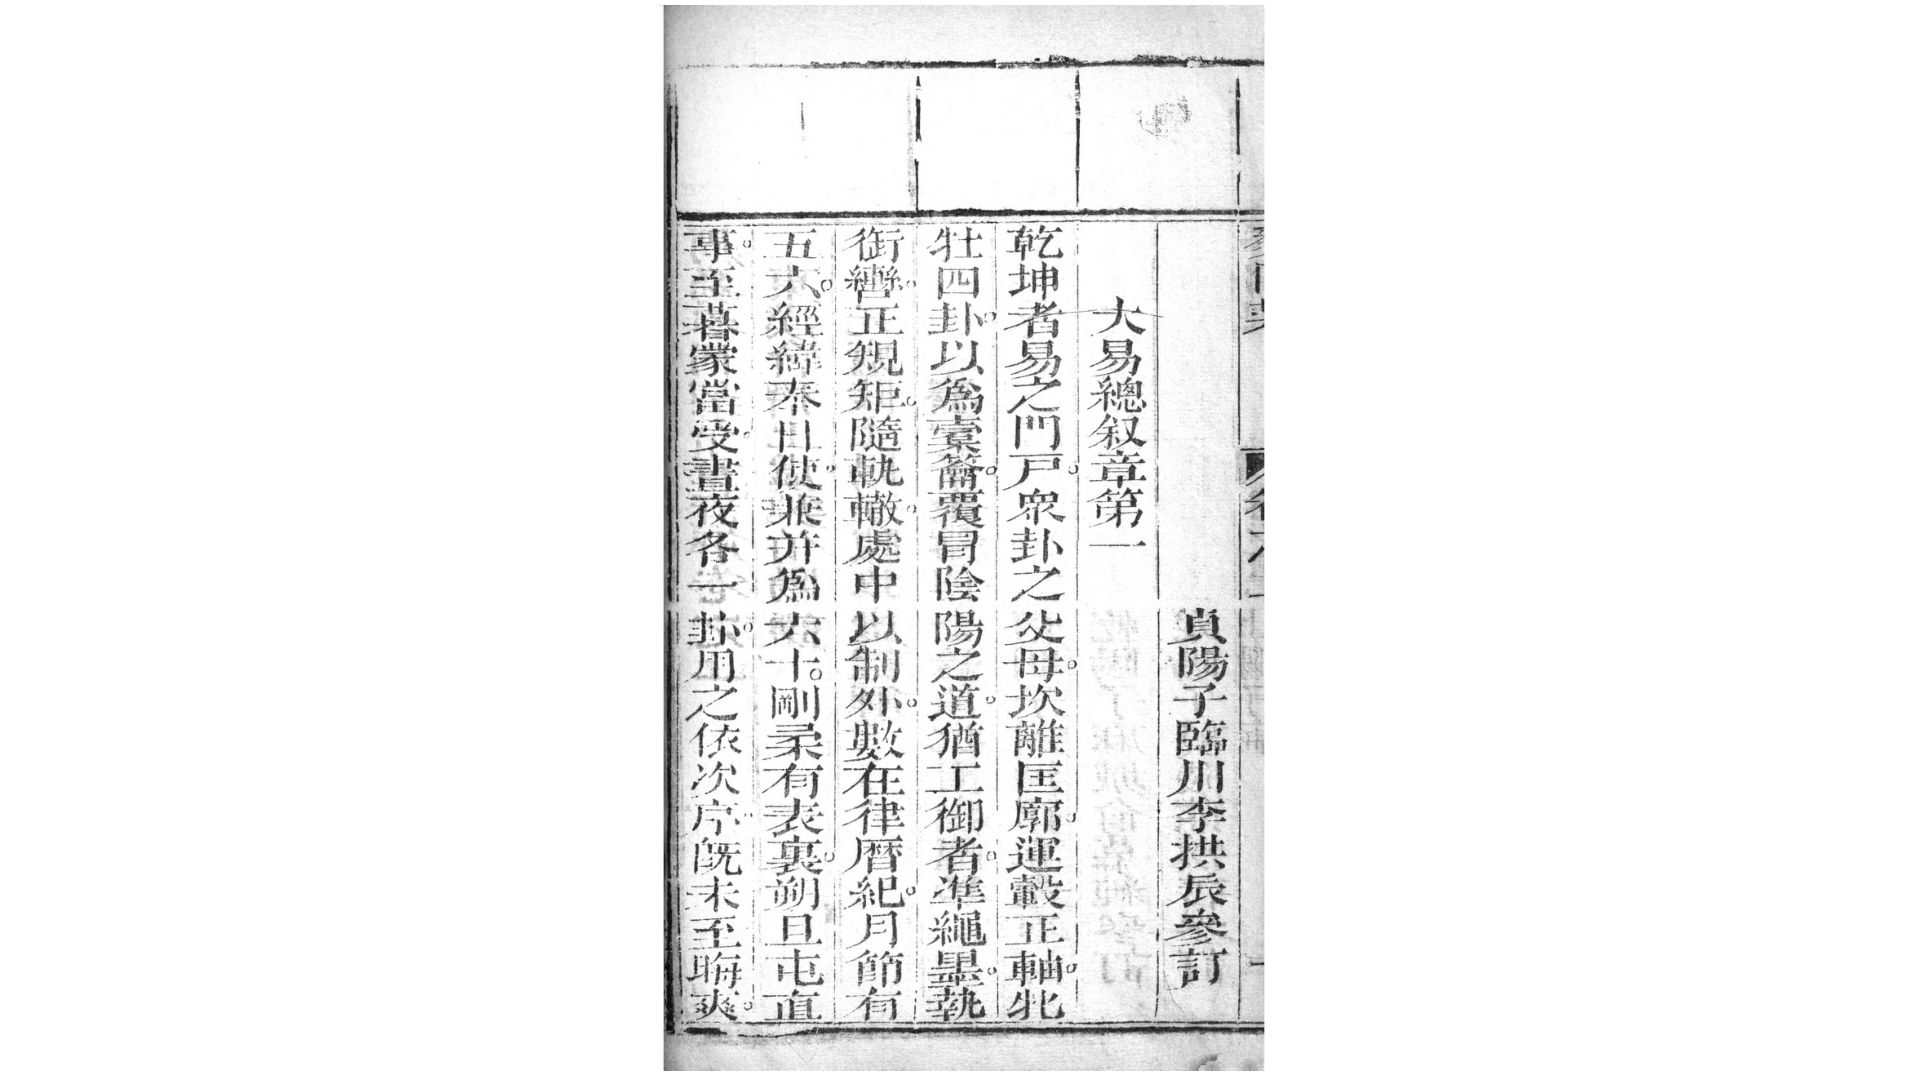 貞陽子臨川李拱辰參訂
大易總叙章第一
乾坤者易之門戸。衆卦之父母。坎離匡廓。運轂正軸。牝
牡四卦。以爲槖籥。覆冒陰陽之道。猶工御者。準繩墨。執
銜轡。正規矩。隨軌轍。處中以制外。數在律曆紀。月節有
五六。經緯奉日使。兼并爲六十。剛柔有表裏。朔旦屯直
事。至暮蒙當受。晝夜各一卦。用之依次序。旣未至晦爽。